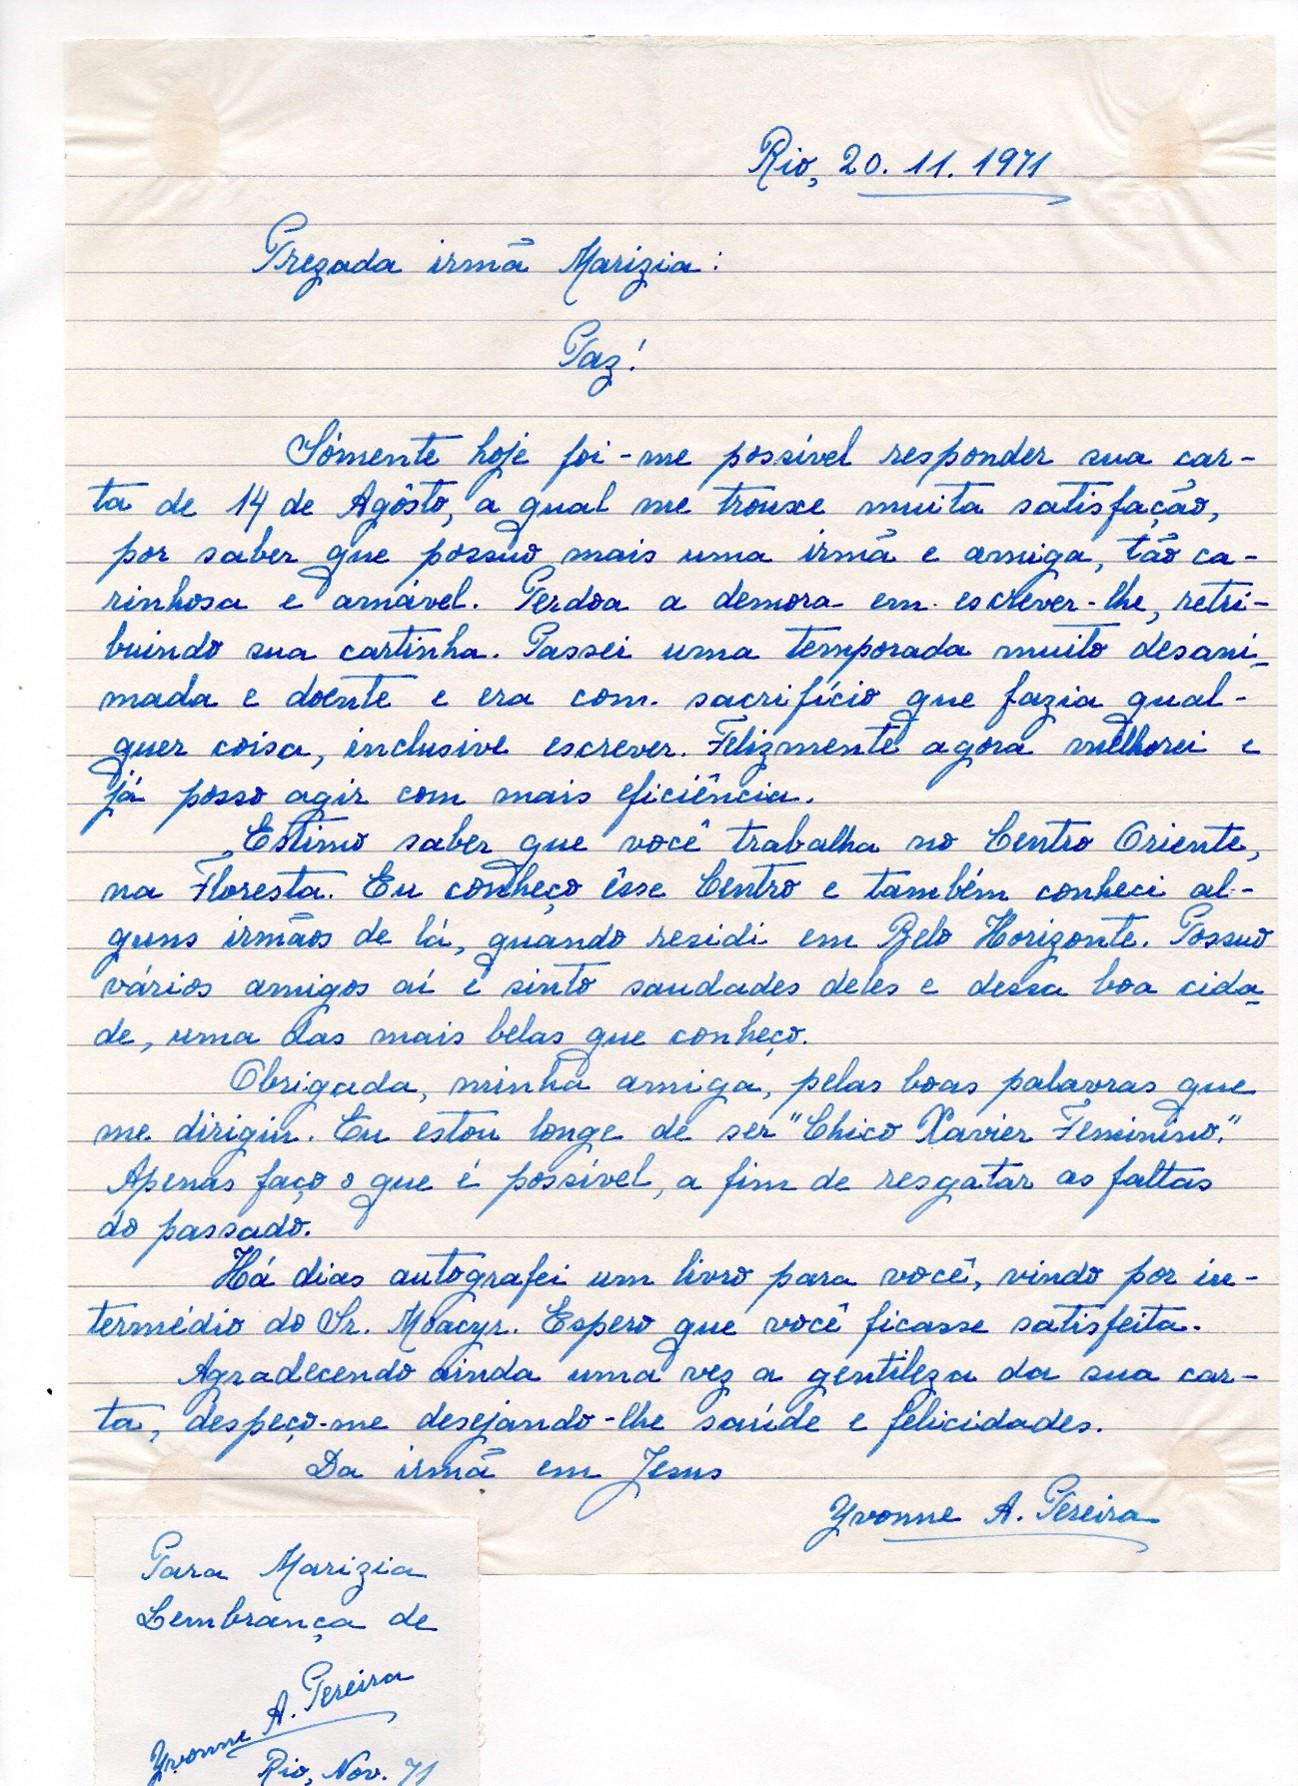 Rio, 20. 11. 1971
Prezada irmã Marizia:
Paz!
Sómente hoje foi-me possível responder sua car-
ta de 14 de Agôsto, a qual me trouxe muita satisfação,
por saber que possuo mais uma irmã e amiga, tão ca-
rinhosa e amável. Perdoa a demora em escrever-lhe, retri-
buindo sua cartinha. Passei uma temporada muito desani-
mada e doente e era com sacrifício que fazia qual-
quer coisa, inclusive escrever. Felizmente agora melhorei e
já posso agir com mais eficiência.
Estimo saber que você trabalha no Centro Oriente,
na Floresta. Eu conheço êsse Centro e também conheci al-
guns irmãos de lá, quando residi em Belo Horizonte. Possuo
vários amigos aí e sinto saudades deles e dessa boa cida-
de, uma das mais belas que conheço.
Obrigada, minha amiga, pelas boas palavras que
me dirigiu. Eu estou longe de ser "Chico Xavier Feminino."
Apenas faço o que é possível, a fim de resgatar as faltas
do passado.
Há dias autografei um livro para você, vindo por in-
termédio do Sr. Moacyr. Espero que você ficasse satisfeita.
Agradecendo ainda uma vez a gentileza da sua car-
ta, despeço-me desejando-lhe saúde e felicidades.
Da irmã em Jesus
Yvonne A. Pereira
Para Marizia
Lembrança de
Yvonne A. Pereira
Rio, Nov. 71